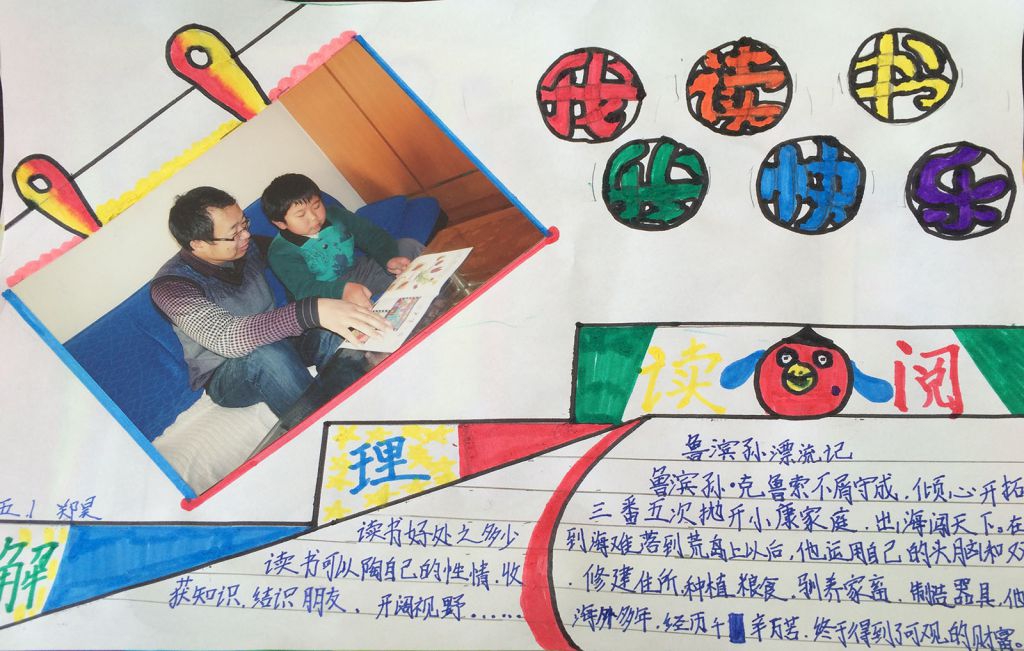 我读书
我快乐
读 阅
理
解
五.1 郑昊
读书好处之多少
读书可以陶自己的性情.收
获知识.结识朋友、开阔视野……
鲁滨孙漂流记
鲁滨孙·克鲁索不屑守成.倾心开拓
三番五次抛开小康家庭.出海闯天下。在
到海难落到荒岛上以后.他运用自己的头脑和双
.修建住所.种植粮食、驯养家畜、制造器具.他
海外多年.经历千辛万苦.终于得到了可观的财富。